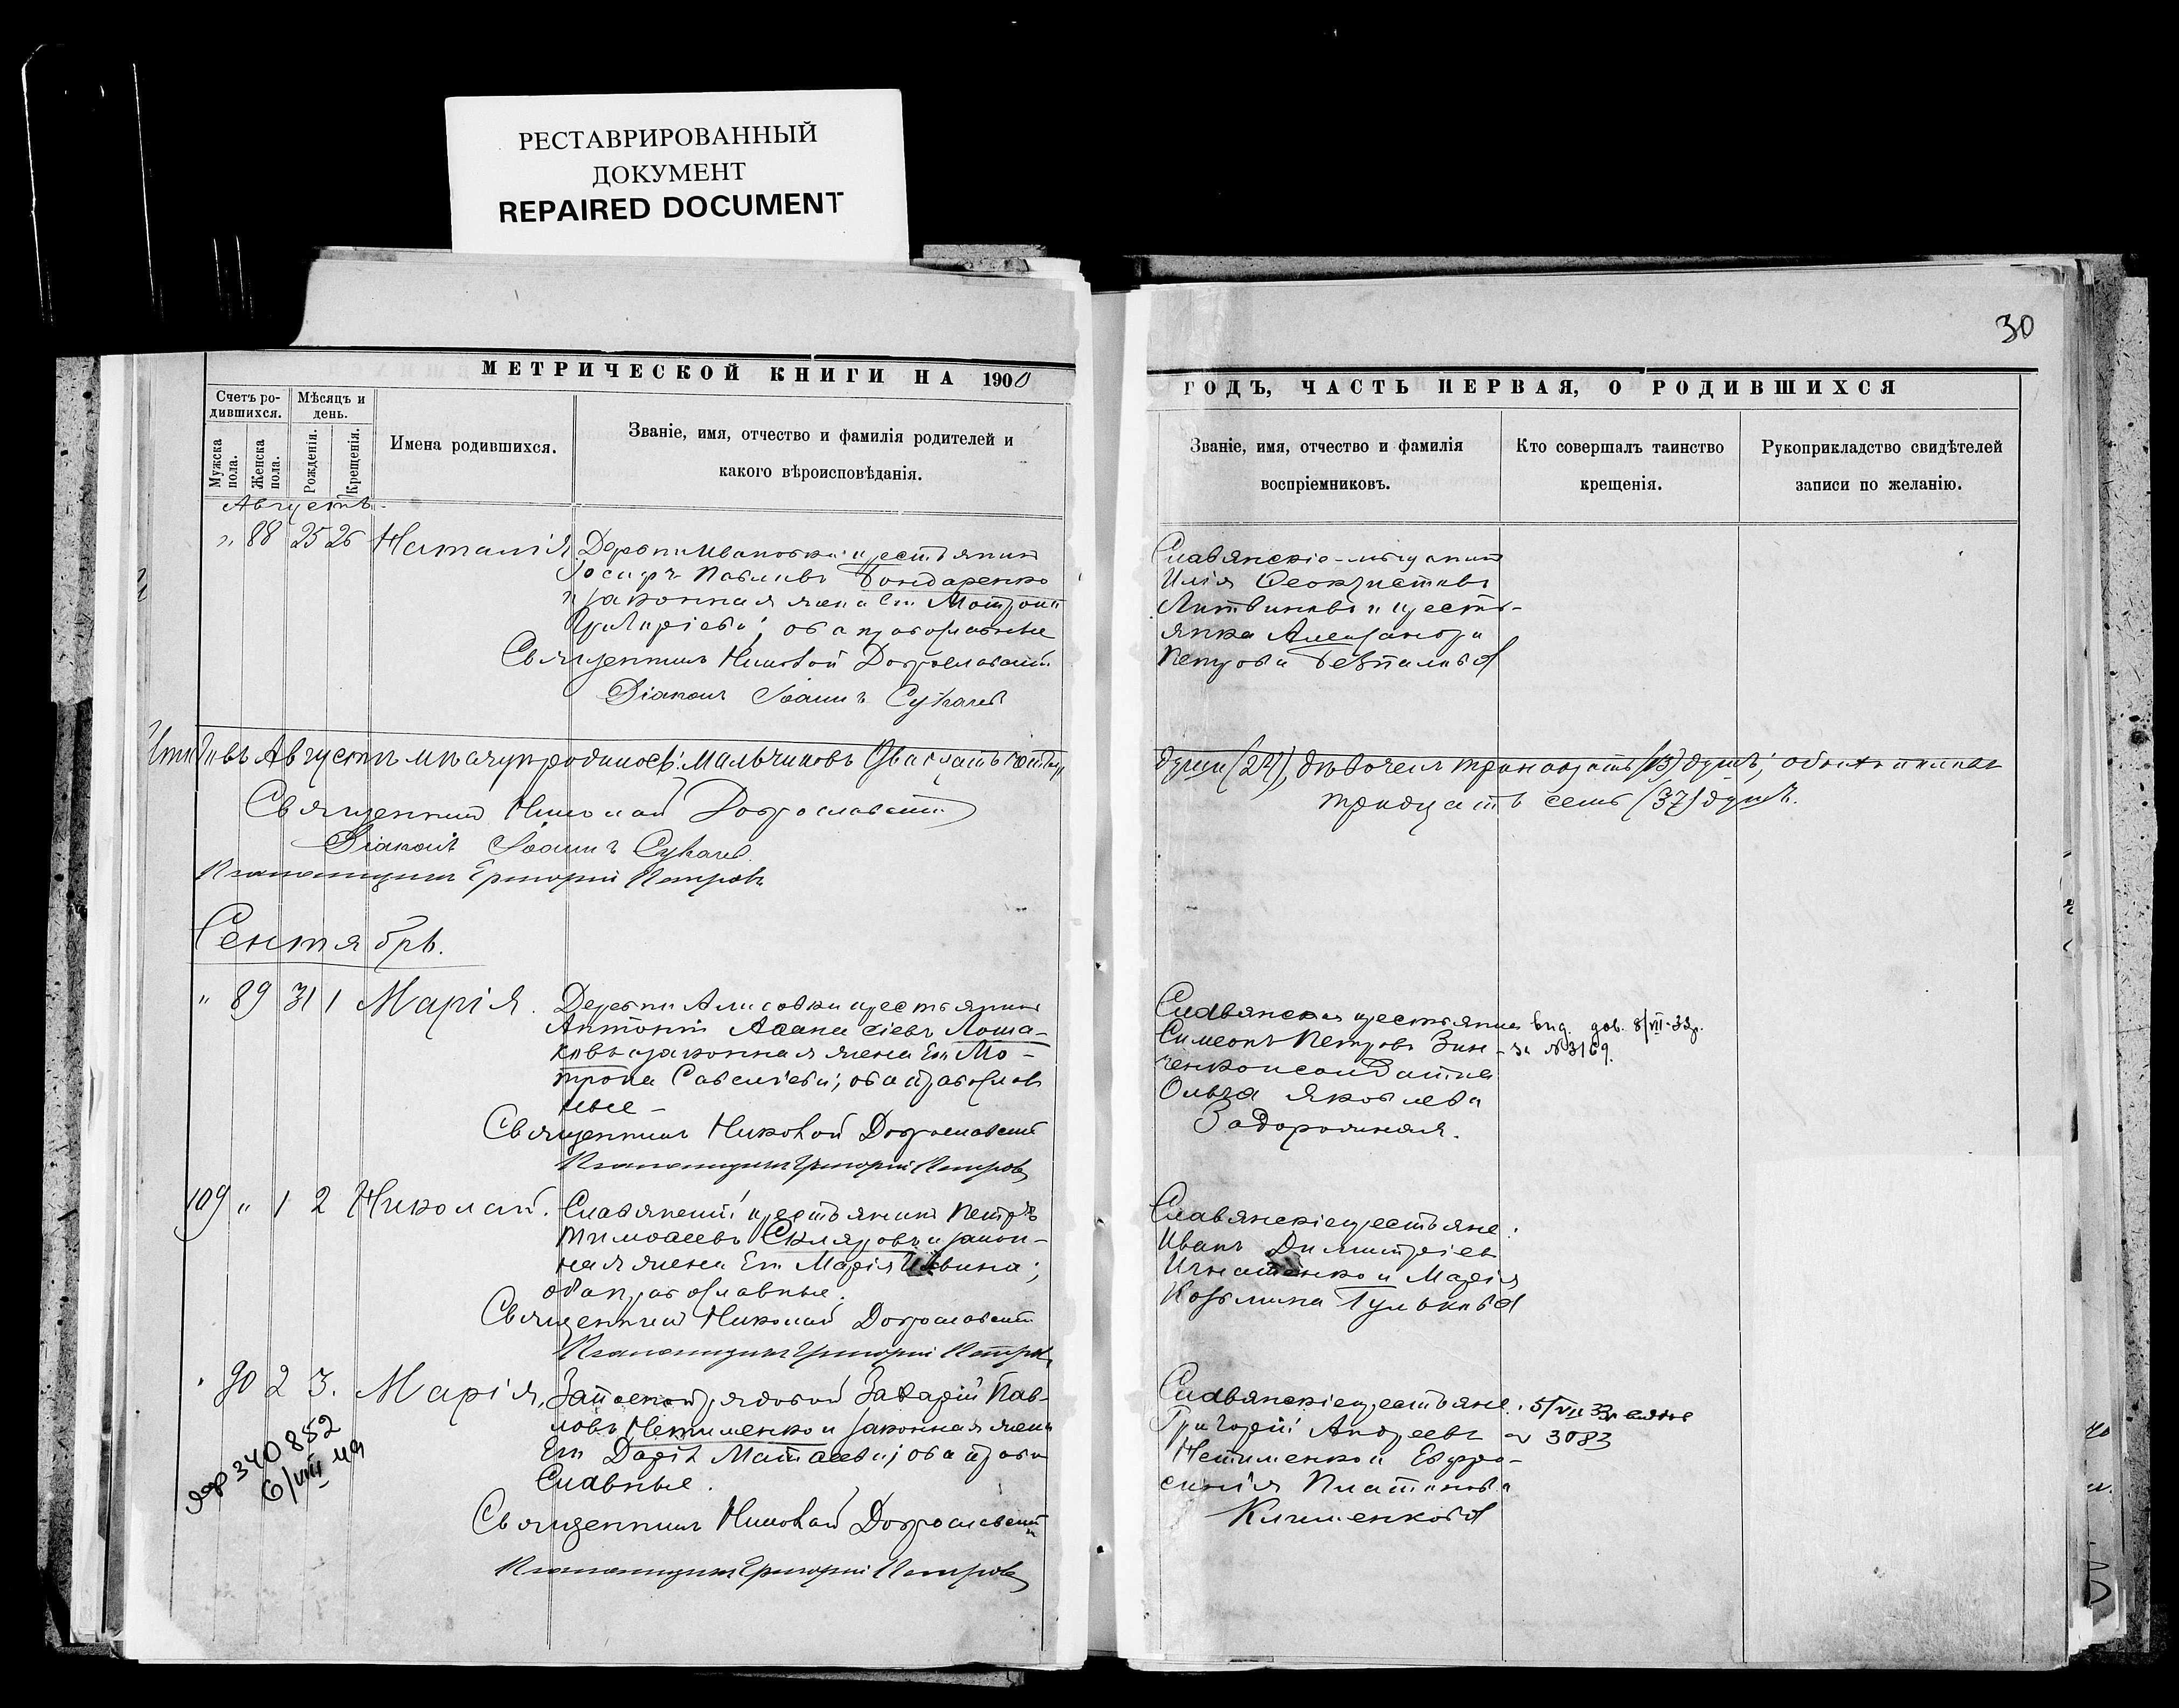 РЕСТАВРИРОВАННЫЙ
ДОКУМЕНТ
REPAIRED DOCUMENT
30
МЕТРИЧЕСКОЙ КНИГИ НА 1900
ГОДЪ, ЧАСТЬ ПЕРВАЯ, О РОДИВШИХСЯ
Счетъ ро-
дившихся.
Мѣсяцъ и
день.
Мужска
пола.
Женска
пола.
Рожденія.
Крещенія.
Имена родившихся.
Званіе, имя, отчество и фамилія родителей и
какого вѣроисповѣданія.
Званіе, имя, отчество и фамилія
воспріемниковъ.
Кто совершалъ таинство
крещенія.
Рукоприкладство свидѣтелей
записи по желанію.
Августъ.
" 88 25 26 Наталія
Деревни Ивановки крестьянинъ
Іосифъ Павловъ Бондаренко
и законная жена его Мотрона
Григоріева; оба православные
Священникъ Николай Доброславскій
Діаконъ Іоаннъ Сукачев
Славянскіе мѣщанин
Илія Феоктистовъ
Литвиновъ и кресть-
янка Александра
Петрова
Итого въ Августѣ мѣсяцѣ родилось: мальчиковъ двадцать четыре
души (24), дѣвочекъ тринадцать (13) душъ; обоего пола
тридцать семь (37) душъ.
Священникъ Николай Доброславскій
Діаконъ Іоаннъ Сукачев
Псаломщикъ Григорій Петровъ
Сентябрь.
" 89 31 1 Марія.
Деревни крестьянинъ
Антоній Аѳанасіевъ Лоша-
ковъ и законная жена его Мо-
трона Савеліева; оба православ
ные -
Священникъ Николай Доброславскій
Псаломщикъ Григорій Петровъ
Симеонъ Петровъ Зин-
ченко и солдатка
Ольга Яковлева
Задорожная.
вид. дов. 8/VII-33г.
за № 3169.
109 " 1 2 Николай.
Славянскій крестьянинъ Петръ
Тимоѳеевъ Скляровъ и закон-
ная жена его Марія
оба православные.
Священникъ Николай Доброславскій
Псаломщикъ Григорій Петровъ
Славянскіе крестьяне:
Иванъ Димитріев
Игнатенко и Марія
Козьмина Гулькова
" 90 2 3. Марія.
Запасной рядовой Захарій Пав-
ловъ Нетименко и законная жена
его Дарія Матѳеева; оба право
славные.
Священникъ Николай Доброславскій
Псаломщикъ Григорій Петровъ
Славянскіе крестьяне:
Григорій Андреевъ
Нетименко и Евфро-
синія Платонова
Клименкова
5/VII 33г
№ 3083
340852
6/VIII 49